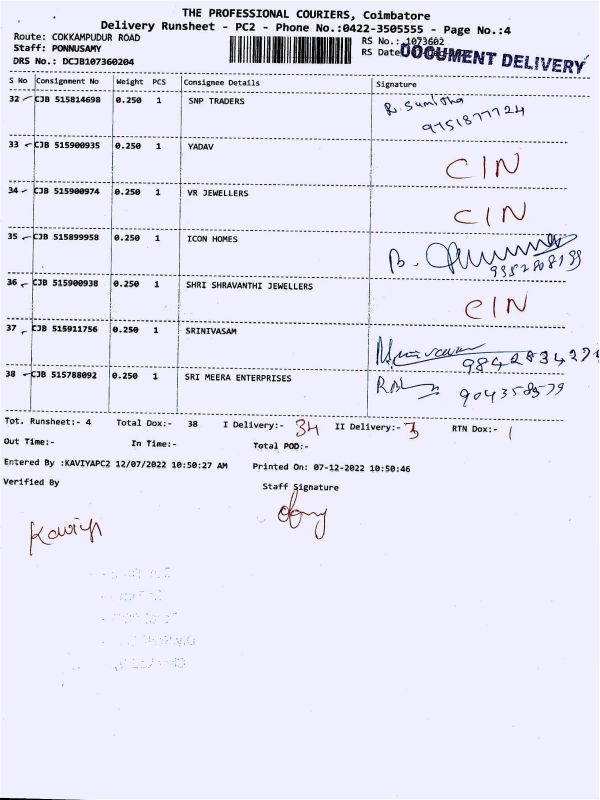 THE PROFESSIONAL COURIERS, Coimbatore
Delivery Runsheet - PC2 - Phone No.:0422-3505555 - Page No.:4
Route: COKKAMPUDUR ROAD
RS No.: 1073602
Staff: PONNUSAMY
RS Date
DOCUMENT DELIVERY
DRS No.: DCJB107360204
S No Consignment No Weight PCS Consignee Details Signature
32 CJB 515814698 0.250 1 SNP TRADERS
9751877724
33 CJB 515900935 0.250 1 YADAV CIN
34 CJB 515900974 0.250 1 VR JEWELLERS CIN
35 CJB 515899958 0.250 1 ICON HOMES B.
36 CJB 515900938 0.250 1 SHRI SHRAVANTHI JEWELLERS CIN
37 CJB 515911756 0.250 1 SRINIVASAM
38 CJB 515788092 0.250 1 SRI MEERA ENTERPRISES
Tot. Runsheet:- 4 Total Dox:- 38 I Delivery:- 34 II Delivery:- 3 RTN Dox:- 1
Out Time:- In Time:- Total POD:-
Entered By :KAVIYAPC2 12/07/2022 10:50:27 AM Printed On: 07-12-2022 10:50:46
Verified By Staff Signature
Kaviya